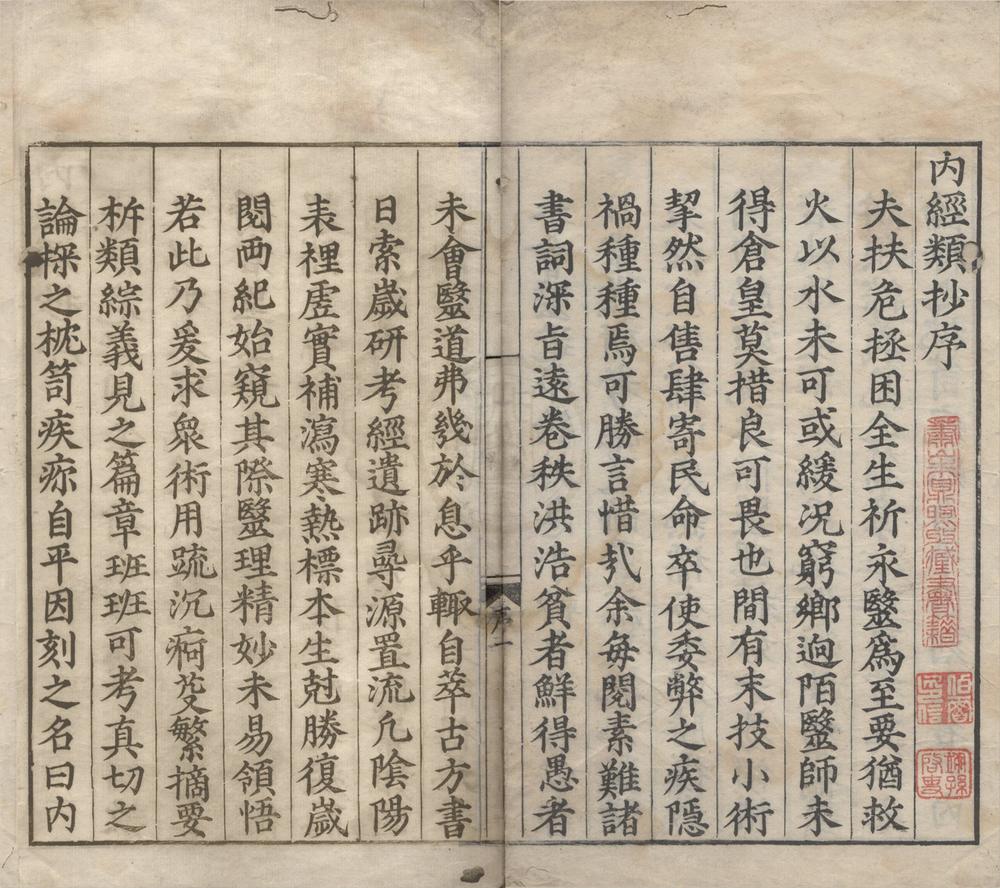 内經類抄序
夫扶危拯困全生祈永毉爲至要猶救
火以水未可或緩况窮鄉逈陌毉師未
得倉皇莫措良可畏也間有末技小術
挈然自售肆寄民命卒使委弊之疾隱
禍種種焉可勝言惜㢤余每閱素難諸
書詞深旨遠卷秩洪浩貧者鮮得愚者
未會毉道弗幾於息乎輙自萃古方書
日索歲研考經遺跡尋源置流凡隂陽
表裡虗實補瀉寒熱標本生尅勝復歲
閱兩紀始窺其際毉理精妙未易領悟
若此乃爰求衆術用䟽沉痾芟繁摘要
柝類綜義見之篇章班班可考真切之
論探之枕笥疾疢自平因刻之名曰内
序一